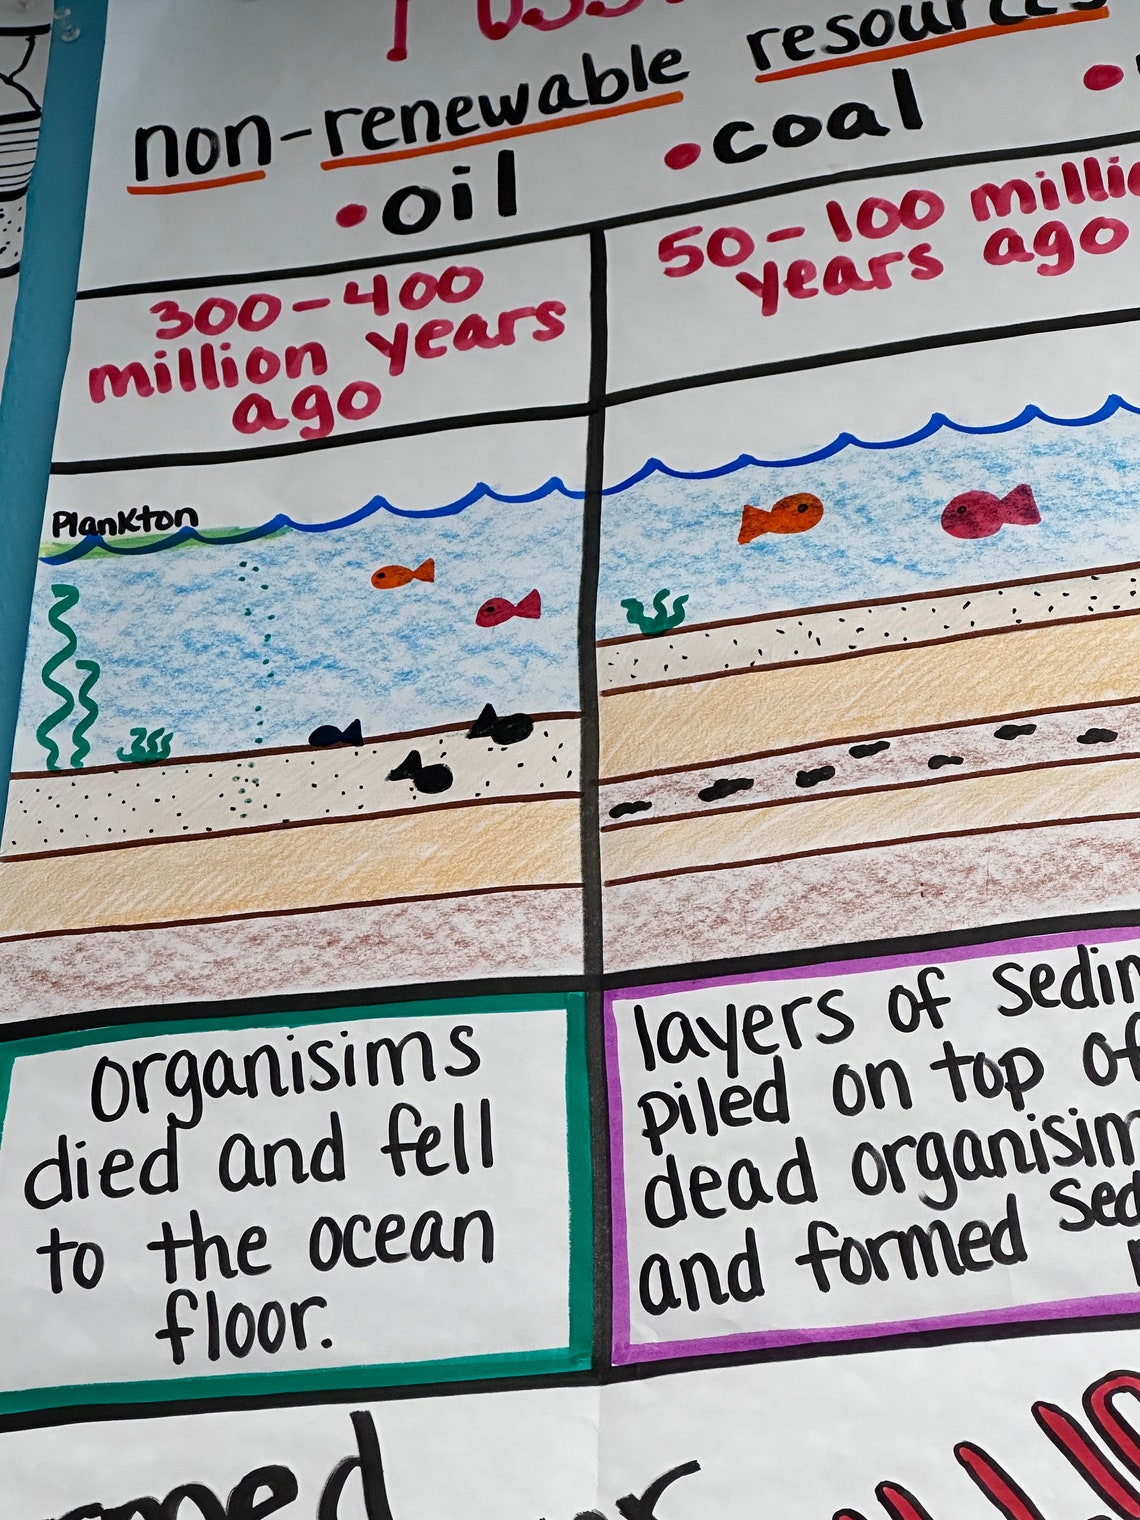 non-renewable resources
• oil • coal •
300-400
million years
ago
50-100 milli
years ago
Plankton
organisims
died and fell
to the ocean
floor.
layers of sedim
piled on top of
dead organisim
and formed sed